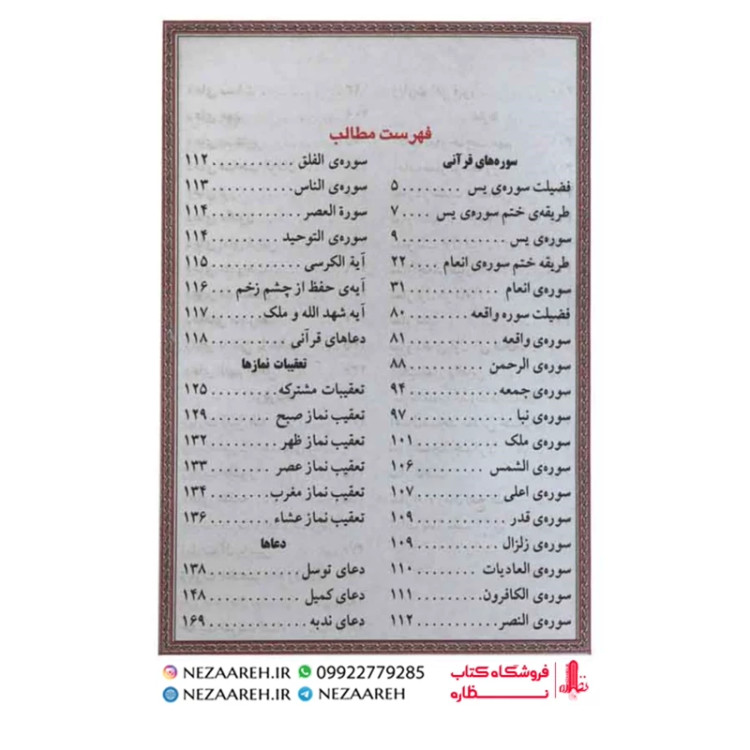 فهرست مطالب
سوره‌های قرآنی
فضیلت سوره‌ی یس ........ ۵
طریقه‌ی ختم سوره‌ی یس .... ۷
سوره‌ی یس ............... ۹
طریقه ختم سوره‌ی انعام .... ۲۲
سوره‌ی انعام ............ ۳۱
فضیلت سوره واقعه ........ ۸۰
سوره‌ی واقعه ............ ۸۱
سوره‌ی الرحمن .......... ۸۸
سوره‌ی جمعه ............ ۹۴
سوره‌ی نبا .............. ۹۷
سوره‌ی ملک ........... ۱۰۱
سوره‌ی الشمس ......... ۱۰۶
سوره‌ی اعلی ........... ۱۰۷
سوره‌ی قدر ............ ۱۰۹
سوره‌ی زلزال .......... ۱۰۹
سوره‌ی العادیات ....... ۱۱۰
سوره‌ی الکافرون ....... ۱۱۱
سوره‌ی النصر .......... ۱۱۲
سوره‌ی الفلق ........... ۱۱۲
سوره‌ی الناس ........... ۱۱۳
سورة العصر ............. ۱۱۴
سوره‌ی التوحید ......... ۱۱۴
آیة الکرسی ............. ۱۱۵
آیه‌ی حفظ از چشم زخم ... ۱۱۶
آیه شهد الله و ملک ...... ۱۱۷
دعاهای قرآنی ........... ۱۱۸
تعقیبات نمازها
تعقیبات مشترکه ......... ۱۲۵
تعقیب نماز صبح ......... ۱۲۹
تعقیب نماز ظهر ......... ۱۳۲
تعقیب نماز عصر ......... ۱۳۳
تعقیب نماز مغرب ........ ۱۳۴
تعقیب نماز عشاء ........ ۱۳۶
دعاها
دعای توسل ............. ۱۳۸
دعای کمیل ............. ۱۴۸
دعای ندبه .............. ۱۶۹
NEZAAREH.IR 09922779285
NEZAAREH.IR NEZAAREH
فروشگاه کتاب
نظاره